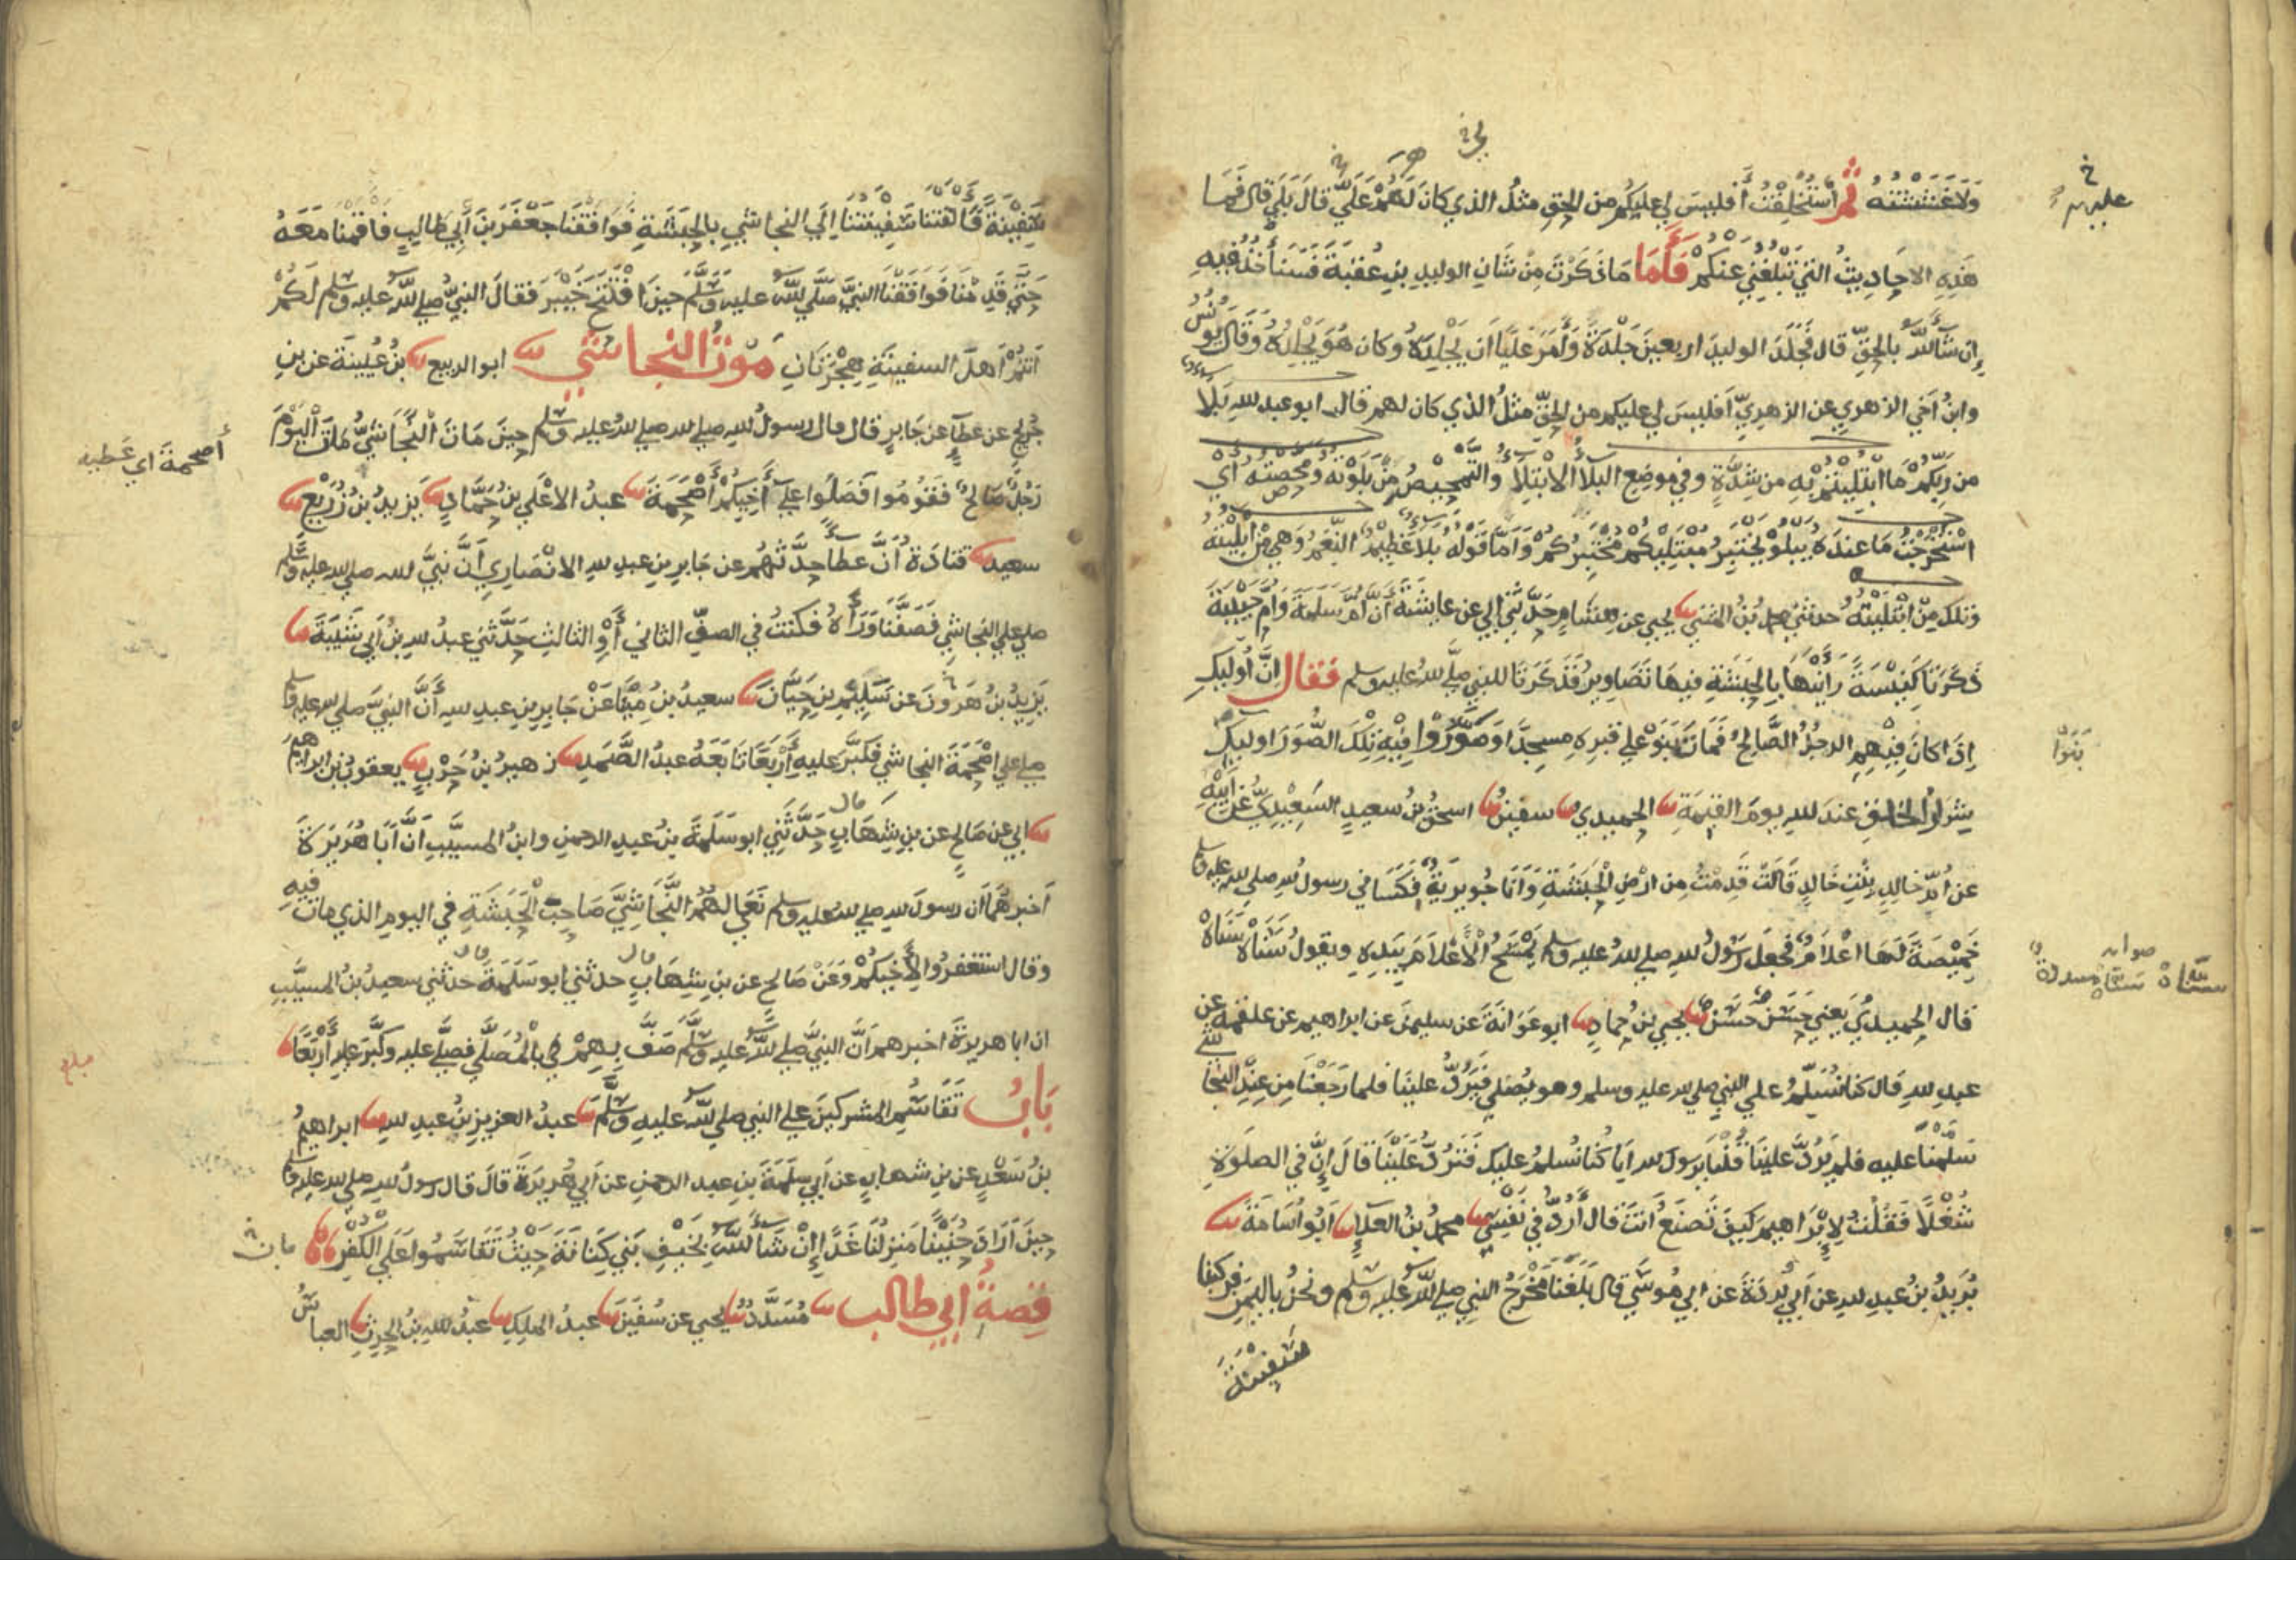 وَلَا غَشَشْتُهُ ثُمَّ اسْتُخْلِفْتُ أَفليسَ لِي عليكُم من الحقِ مثلُ الذي كانَ لَهُمْ عَلَيَّ قالَ بَلَى قال فَمَا
هَذِهِ الاحَادِيثُ التي تَبْلُغُنِي عَنكُمْ فَأَمَّا مَا ذَكَرْتَ مِن شَانِ الوليدِ بنِ عُقبَةَ فَسَنَأْخُذُ فِيهِ
اِن شَآءَ اللَّهُ بالحَقِّ قال فجَلَدَ الوليدَ اربعينَ جَلْدَةً وَأَمَرَ عَلِيًّا اَن يَجْلِدَهُ وكان هُوَ يَجْلِدُهُ وَقَالَ يُونُسُ
وابنُ اَخِي الزهريِ عن الزهريِّ اَفليسَ لي عليكم من الحَقِّ مثلُ الذي كان لهم قال ابو عبد لله بَلَآءٌ
من رَبِّكُمْ مَا ابْتُلِيْتُمْ بِهِ من شِدَّةٍ وفي موضِعٍ البَلَآءُ الاِبْتِلَآءُ والتَّمْحِيْصُ مِنْ بَلَوْتُهُ ومَحَّصْتُهُ اَي
اسْتَخْرَجْتُ مَا عِندَهُ يَبْلُوْ يَخْتَبِرُ مُبْتَلِيْكُم مُخْتَبِرُكُمْ وَاَمَّا قَوْلُهُ بَلَاءٌ عَظِيْمٌ النِّعَمُ وَهِيَ مِنْ اَبْلَيْتُهُ
وَتلك مِنْ ابْتَلَيْتُهُ حدثني محمدُ بْنُ المثنى ثنا يحيى عن هِشَامٍ حَدَّثَنِي اَبِي عن عايشَةَ أَنَّ أُمَّ سلمةَ وَاُمَّ حَبِيْبَةَ
ذَكَرَتَا كَنِيْسَةً رَاَيْنَهَا بِالحَبَشَةِ فيهَا تَصَاوِيرُ فَذَكَرَتَا للنبي صلى لله عليه وسلم فَقال اِنَّ أُوليكِ
اِذَا كانَ فِيْهِمِ الرجُلُ الصَّالِحُ فَمَاتَ بَنَوْ علي قبرِهِ مسجِدًا وَصَوَّرُوا فِيْهِ تِلْكَ الصُّوَرَ اوليكِ
شِرَارُ الخلقِ عندَ للهِ يومَ القِيٰمَةِ ثنا الحميدي ثنا سفينُ ثنا اسحٰقُ بنُ سعيدٍ السَعِيْدِيُّ عَنْ اَبِيْهِ
عن اُمِّ خالِدٍ بِنْتِ خَالِدٍ قَالَتْ قَدِمْتُ مِن ارْضِ الحَبَشَةِ وَاَنَا جُوَيْرِيَةٌ فَكَسَانِي رسولُ للهِ صلى لله عليه وسلم
خَمِيْصَةً لَهَا اعْلَامٌ فجعَلَ رَسُوْلُ للهِ صلى للهُ عليه وسلم يَمْسَحُ الْأَعْلَامَ بِيَدِهِ ويقولُ سَنَاهْ سَنَاهْ
قال الحُميديُّ يَعْنِي حَسَنٌ حَسَنٌ ثنا يحيى بنُ حمادٍ ثنا ابو عَوَانَةَ عن سليمٰنَ عن ابراهيم عن علقمة عن
عبدِ للهِ قال كنا نُسَلِّمُ علي النبي صلى لله عليه وسلم وهو يُصَلِّي فَيَرُدُّ علينَا فلما رَجَعْنَا مِن عِندِ النجاشي
سَلَّمْنَا عليه فلم يَرُدَّ عليْنَا قُلْنَا يَرسولَ لله اِنَّا كُنَّا نُسَلِّمُ عليكَ فَتَرُدُّ عَلَيْنَا قالَ اِنَّ في الصلَوةِ
شُغْلًا فَقُلْتُ لِإِبْرَاهِيمَ كَيْفَ تَصْنَعُ أَنتَ قال أَرُدُّ في نَفْسِي ثنا محمدُ بْنُ العَلَآءِ ثنا اَبُو اُسَامَةَ ثنا
بُرَيْدُ بنُ عبدِ للهِ عن اَبِي بُرْدَةَ عن ابي مُوسَى قال بَلَغَنَا مَخْرَجُ النبي صلى للَّهُ عليه وسلم ونحنُ باليمَنِ فركبنَا
سَفِيْنَةً
عليهم
بَنَوْا
سَفِيْنَةً فَأَلْقَتْنَا سَفِيْنَتُنَا اِلَى النجاشي بالحَبَشَةِ فَوَافَقْنَا جَعْفَرَ بْنَ اَبِي طَالِبٍ فَاَقَمْنَا مَعَهُ
حَتَّى قَدِمْنَا فَوَافَقْنَا النبيَّ صَلَّى للَّهُ عليه وَسَلَّمَ حِينَ افْتَتَحَ خَيْبَرَ فقالَ النبيُّ صلى للَّهُ عليه وسلم لَكُمْ
اَنتُمْ اَهلَ السفينَةِ هِجْرَتَانِ مَوْتُ النجاشي ثنا ابو الربيعِ ثنا بنُ عُيَيْنَةَ عن بنِ
جُرَيْجٍ عن عَطآءٍ عن جَابِرٍ قال قال رسولُ للهِ صلى لله عليه وسلم حِينَ مَاتَ النَّجَاشِيُّ مَاتَ الْيَوْمَ
رَجُلٌ صَالِحٌ فَقُوْمُوا فَصَلُّوا علَى أَخِيْكُمْ أَصْحَمَةَ ثنا عبدُ الاَعْلَى بنُ حَمَّادٍ ثنا يَزيدُ بنُ زُرَيْعٍ ثنا
سعيد ثنا قَتَادَةُ أَنَّ عَطَآءً حَدَّثَهُم عن جَابِرِ بنِ عبدِ للهِ الانْصَارِيِ اَنَّ نبيَّ لله صلى لله عليه وسلم
صلى علَى النجاشي فَصَفَّنَا وَرَآءَهُ فَكُنتُ في الصفِّ الثاني أَوِ الثالثِ حَدَّثَنِي عبدُ للهِ بنُ اَبِي شَيْبَةَ ثنا
يَزِيدُ بنُ هٰرونَ عن سَلِيْمِ بنِ حَيَّانَ ثنا سعيدُ بنُ مِيْنَا عَنْ جَابِرِ بنِ عبدِ للهِ أَنَّ النبيَّ صلى لله عليه وسلم
صلى علي اصْحَمَةَ النجاشي فكَبَّرَ عليهِ أَرْبَعًا تَابَعَهُ عبدُ الصَّمَدِ ثنا زهيرُ بنُ حَرْبٍ ثنا يعقوبُ بن ابراهيم
ثنا ابي عن صَالحٍ عن بنِ شِهَابٍ قال حَدَّثَنِي ابو سَلَمَةَ بنُ عبدِ الرحمنِ وابنُ المسيَّبِ أَنَّ أَبَا هُرَيْرَةَ
اَخبرهُمَا اَن رسولَ للهِ صلى لله عليه وسلم نَعَى لهُمُ النَّجَاشِيَّ صَاحِبَ الْحَبَشَةِ في اليومِ الذي مات فيهِ
وقال استغفروا لأَخِيْكُمْ وَعَنْ صَالحٍ عن بنِ شِهَابٍ قال حدثني ابو سَلَمَةَ قال حدثني سعيدُ بنُ المسيَّبِ
ان ابا هريرةَ اخبرهم اَنَّ النبيَّ صلى للَّهُ عليه وسلَّمَ صَفَّ بِهِمْ في الْمُصَلَّى فصلَّى عليه وكبَّرَ عليهِ أَرْبَعًا
بَابُ تَقَاسُمِ المشركينَ علَى النبي صلى للَّهُ عليهِ وسَلَّمَ ثنا عبدُ العزيزِ بنُ عبدِ للهِ ثنا ابراهيمُ
بنُ سَعْدٍ عن بنِ شهابٍ عن اَبِي سلَمَةَ بنِ عبد الرحمنِ عن اَبِي هُرَيرَةَ قالَ قال رسولُ للهِ صلى لله عليه وسلم
حِينَ اَرَادَ حُنَيْنًا مَنزِلُنَا غَدًا إِنْ شَآءَ للَّهُ بِخَيْفِ بَنِي كِنَانَةَ حَيْثُ تَقَاسَمُوا عَلَى الْكُفْرِ
قِصةُ ابي طالب ثنا مُسَدَّدٌ ثنا يحيى عن سُفْيَنَ ثنا عبدُ الملِكِ ثنا عبدُ للهِ بنُ الحٰرِثِ ثنا العباسُ
أصحمة اي عَطيه